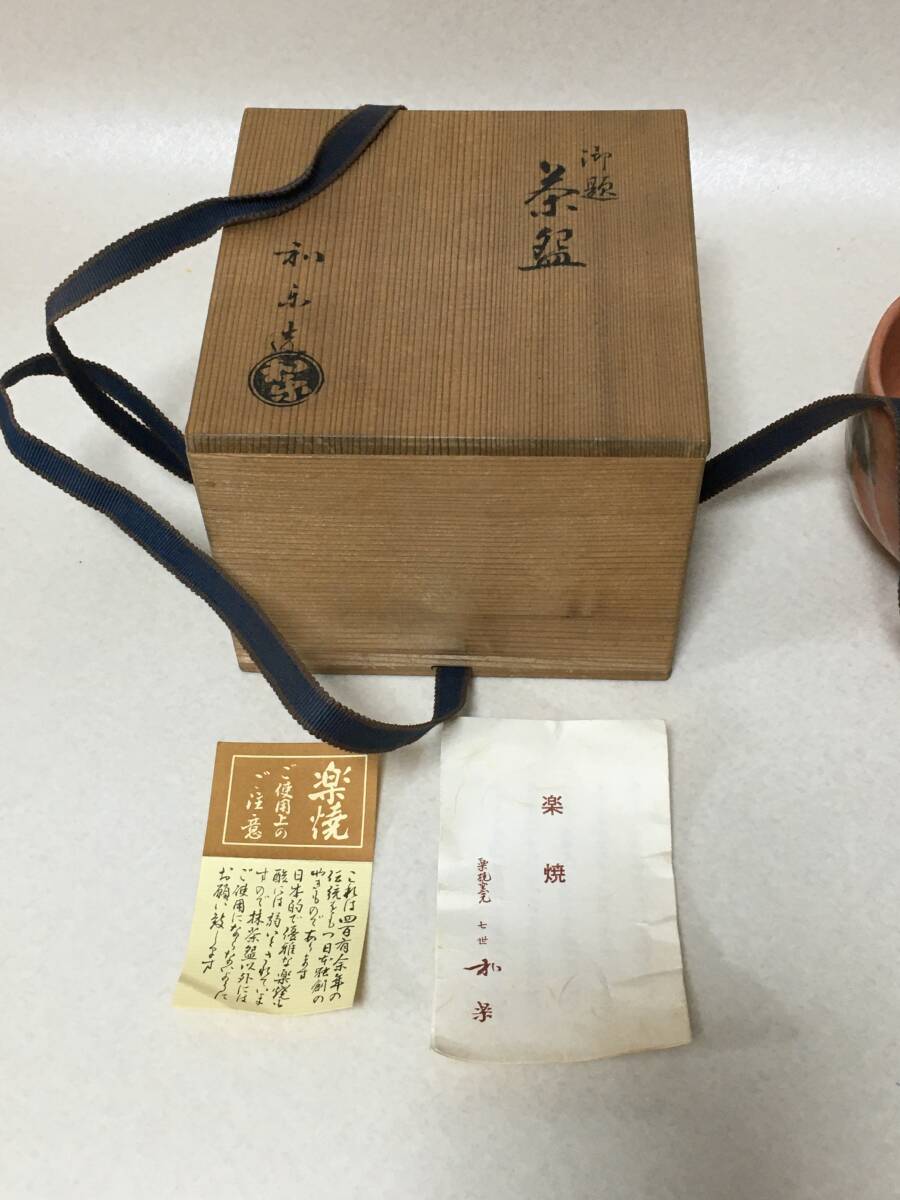 御題
茶盌
和楽造
和楽
楽焼
ご使用上の
ご注意
これは四百有余年の
伝統をもつ日本独創の
やきものであります
日本的で優雅な楽焼も
酸には弱いとされていま
すので抹茶盌以外には
ご使用にならないように
お願い致します
楽焼
楽焼窯元 七世 和楽